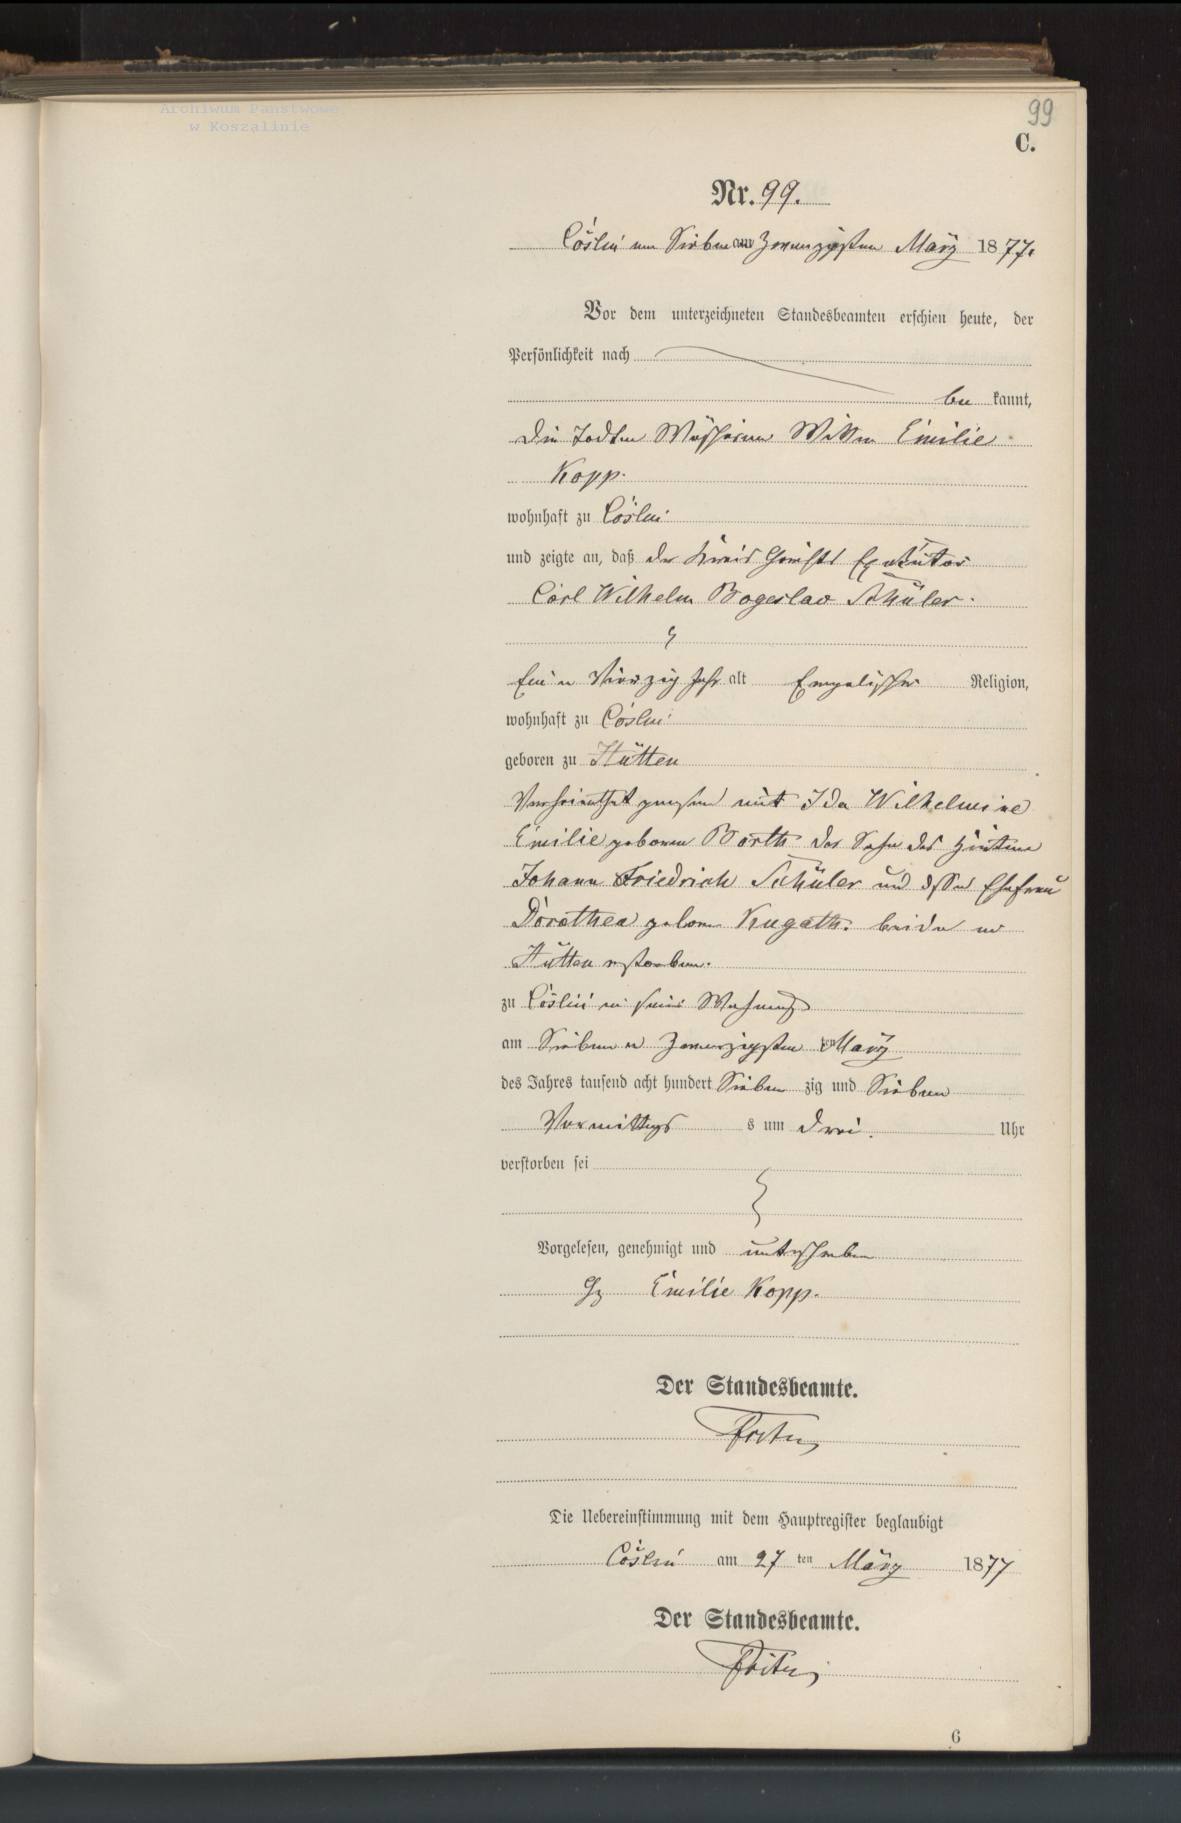 Archiwum Państwowe
w Koszalinie
99
C.
Nr. 99.
Cöslin am Sieben und Zwanzigsten März 1877.
Vor dem unterzeichneten Standesbeamten erschien heute, der
Persönlichkeit nach
be kannt,
die Todten Wäscherin Wittwe Emilie
Kopp.
wohnhaft zu Cöslin
und zeigte an, daß der Kreis Gerichts Exekutor
Carl Wilhelm Bogeslav Schüler.
Ein u Vierzig Jahr alt Evangelischer Religion,
wohnhaft zu Cöslin
geboren zu Hütten
Verheirathet gewesen mit Ida Wilhelmine
Emilie geborene Borth der Sohn des
Johann Friedrich Schüler und dessen Ehefrau
Dorothea geborne beide in
Hütten verstorben.
zu Cöslin in seiner Wohnung
am Sieben u Zwanzigsten ten März
des Jahres tausend acht hundert Sieben zig und Sieben
Vormittags s um drei Uhr
verstorben sei
Vorgelesen, genehmigt und unterschrieben
Gz Emilie Kopp.
Der Standesbeamte.
Die Uebereinstimmung mit dem Hauptregister beglaubigt
Cöslin am 27 ten März 1877
Der Standesbeamte.
6